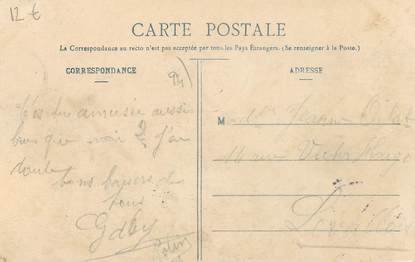 12 €
CARTE POSTALE
La Correspondance au recto n'est pas acceptée par tous les Pays Étrangers. (Se renseigner à la Poste.)
CORRESPONDANCE
94
T'es tu amusée aussi
bien que moi ? J'en
doute
bons baisers de
tous
Gaby
ADRESSE
M
14 rue Victor Hugo